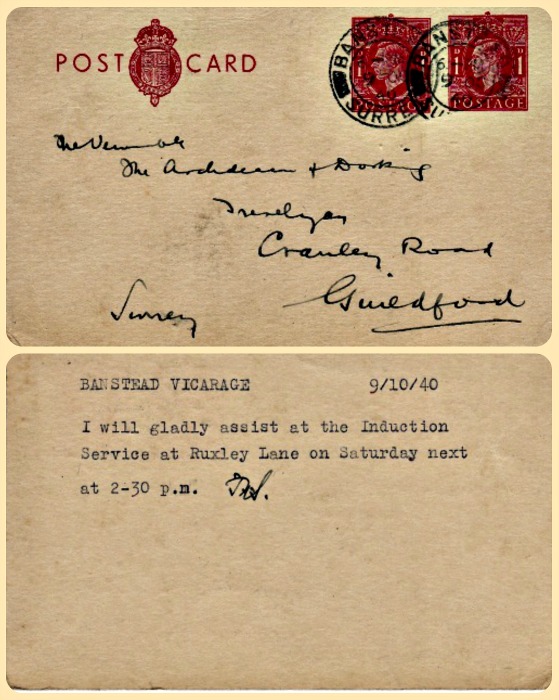 POST CARD
BANSTEAD
SURREY
1D 1D
POSTAGE
The Venerable
The Archdeacon of Dorking
Cranley Road
Guildford
Surrey
BANSTEAD VICARAGE 9/10/40
I will gladly assist at the Induction
Service at Ruxley Lane on Saturday next
at 2-30 p.m.